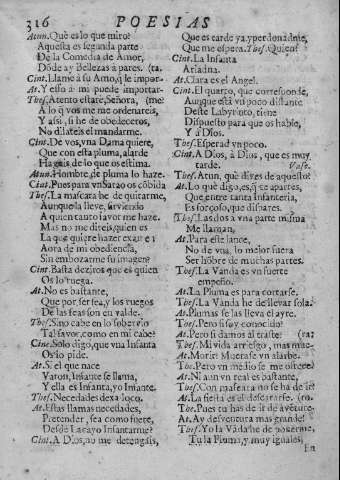 316 POESIAS
Atun. Què es lo que miro?
Aquesta es segunda parte
De la Comedia de Amor,
Dõde ay Bellezas à pares. (ta.
Cint. Llamè à su Amo, q̃ le impor-
At. Y esso à mi puede importar-
Thes. Atento estarè, Señora, (me?
A lo q̃ vos me me ordenareis,
Y assi, si he de obedeceros,
No dilateis el mandarme.
Cint. De vos, vna Dama quiere,
Que con esta pluma, alarde
Hagais de lo que os estima.
Atun. Hombre, de pluma lo haze.
Cint. Pues para vn Sarao os cõbida
Thes. La mascara he de quitarme,
Aunque la lleve, sirviendo
A quien tanto favor me haze.
Mas no me direis, quien es
La que quiere hazer examen
Aora de mi obediencia,
Sin embozarme su imagen?
Cint. Basta deziros que es quien
Os lo ruega.
At. No es bastante,
Que por ser fea, y los ruegos
De las feas son en valde.
Thes. Sino cabe en lo sobervio
Tal favor, como en mi cabe?
Cint. Solo digo, que vna Infanta
Os lo pide.
At. Si el que nace
Varon, Infante se llama,
Y ella es Infanta, yo Infante.
Thes. Necedades dexa loco.
At. Estas llamas necedades,
Pretender, sea como fuere,
Desde Lacayo Infantarme?
Cint. A Dios, no me detengais,
Que es tarde ya, y perdonadme,
Que me espera. Thes. Quien?
Cint. La Infanta
Ariadna.
At. Clara es el Angel.
Cint. El quarto, que corresponde,
Aunque està vn poco distante
Deste Labyrinto, tiene
Dispuesto para que os hable,
Y à Dios.
Thes. Esperad vn poco.
Cint. A Dios, à Dios, que es muy
tarde. Vase.
Thes. Atun, què dizes de aquesto?
At. Lo què digo, es, q̃ te apartes,
Que, entre tanta Infanteria,
Es forçoso, que dispares.
Thes. Las dos a vna parte misma
Me llaman,
At. Para este lance,
No de vna, lo mejor fuera
Ser hõbre de muchas partes.
Thes. La Vanda es vn fuerte
empeño.
At. La Pluma es para cortarse.
Thes. La Vanda he de llevar sola.
At. Plumas se las lleva el ayre.
Thes. Pero si soy conocido?
At. Pero si damos al traste? (ra?
Thes. Mi vida arriesgo, mas què
At. Morir: Muerasse vn alarbe.
The. Pero vn medio se me ofrece
At. Ni aun vn real es bastante,
Thes. Con mascara no se ha de ir?
At. La fiesta es el descararse. (ro.
The. Pues tu has de ir de avẽture-
At. Ay desventura mas grande!
Thes. Yo la Vãda he de ponerme,
Tu la Pluma, y muy iguales,
En